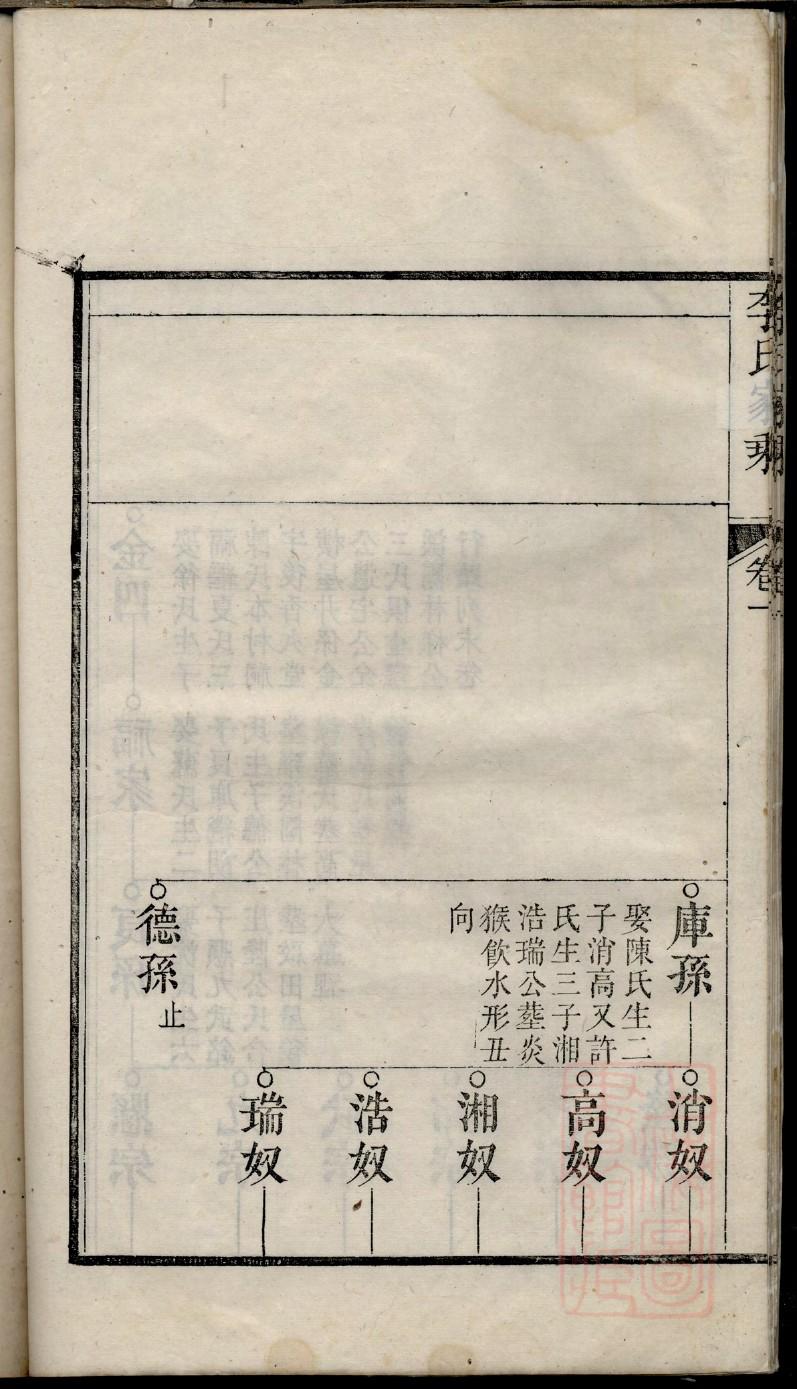 李氏家乘
卷一
庫孫
娶陳氏生二
子消高又許
氏生三子湘
浩瑞公塟炎
猴飲水形丑
向
德孫
止
消奴
高奴
湘奴
浩奴
瑞奴